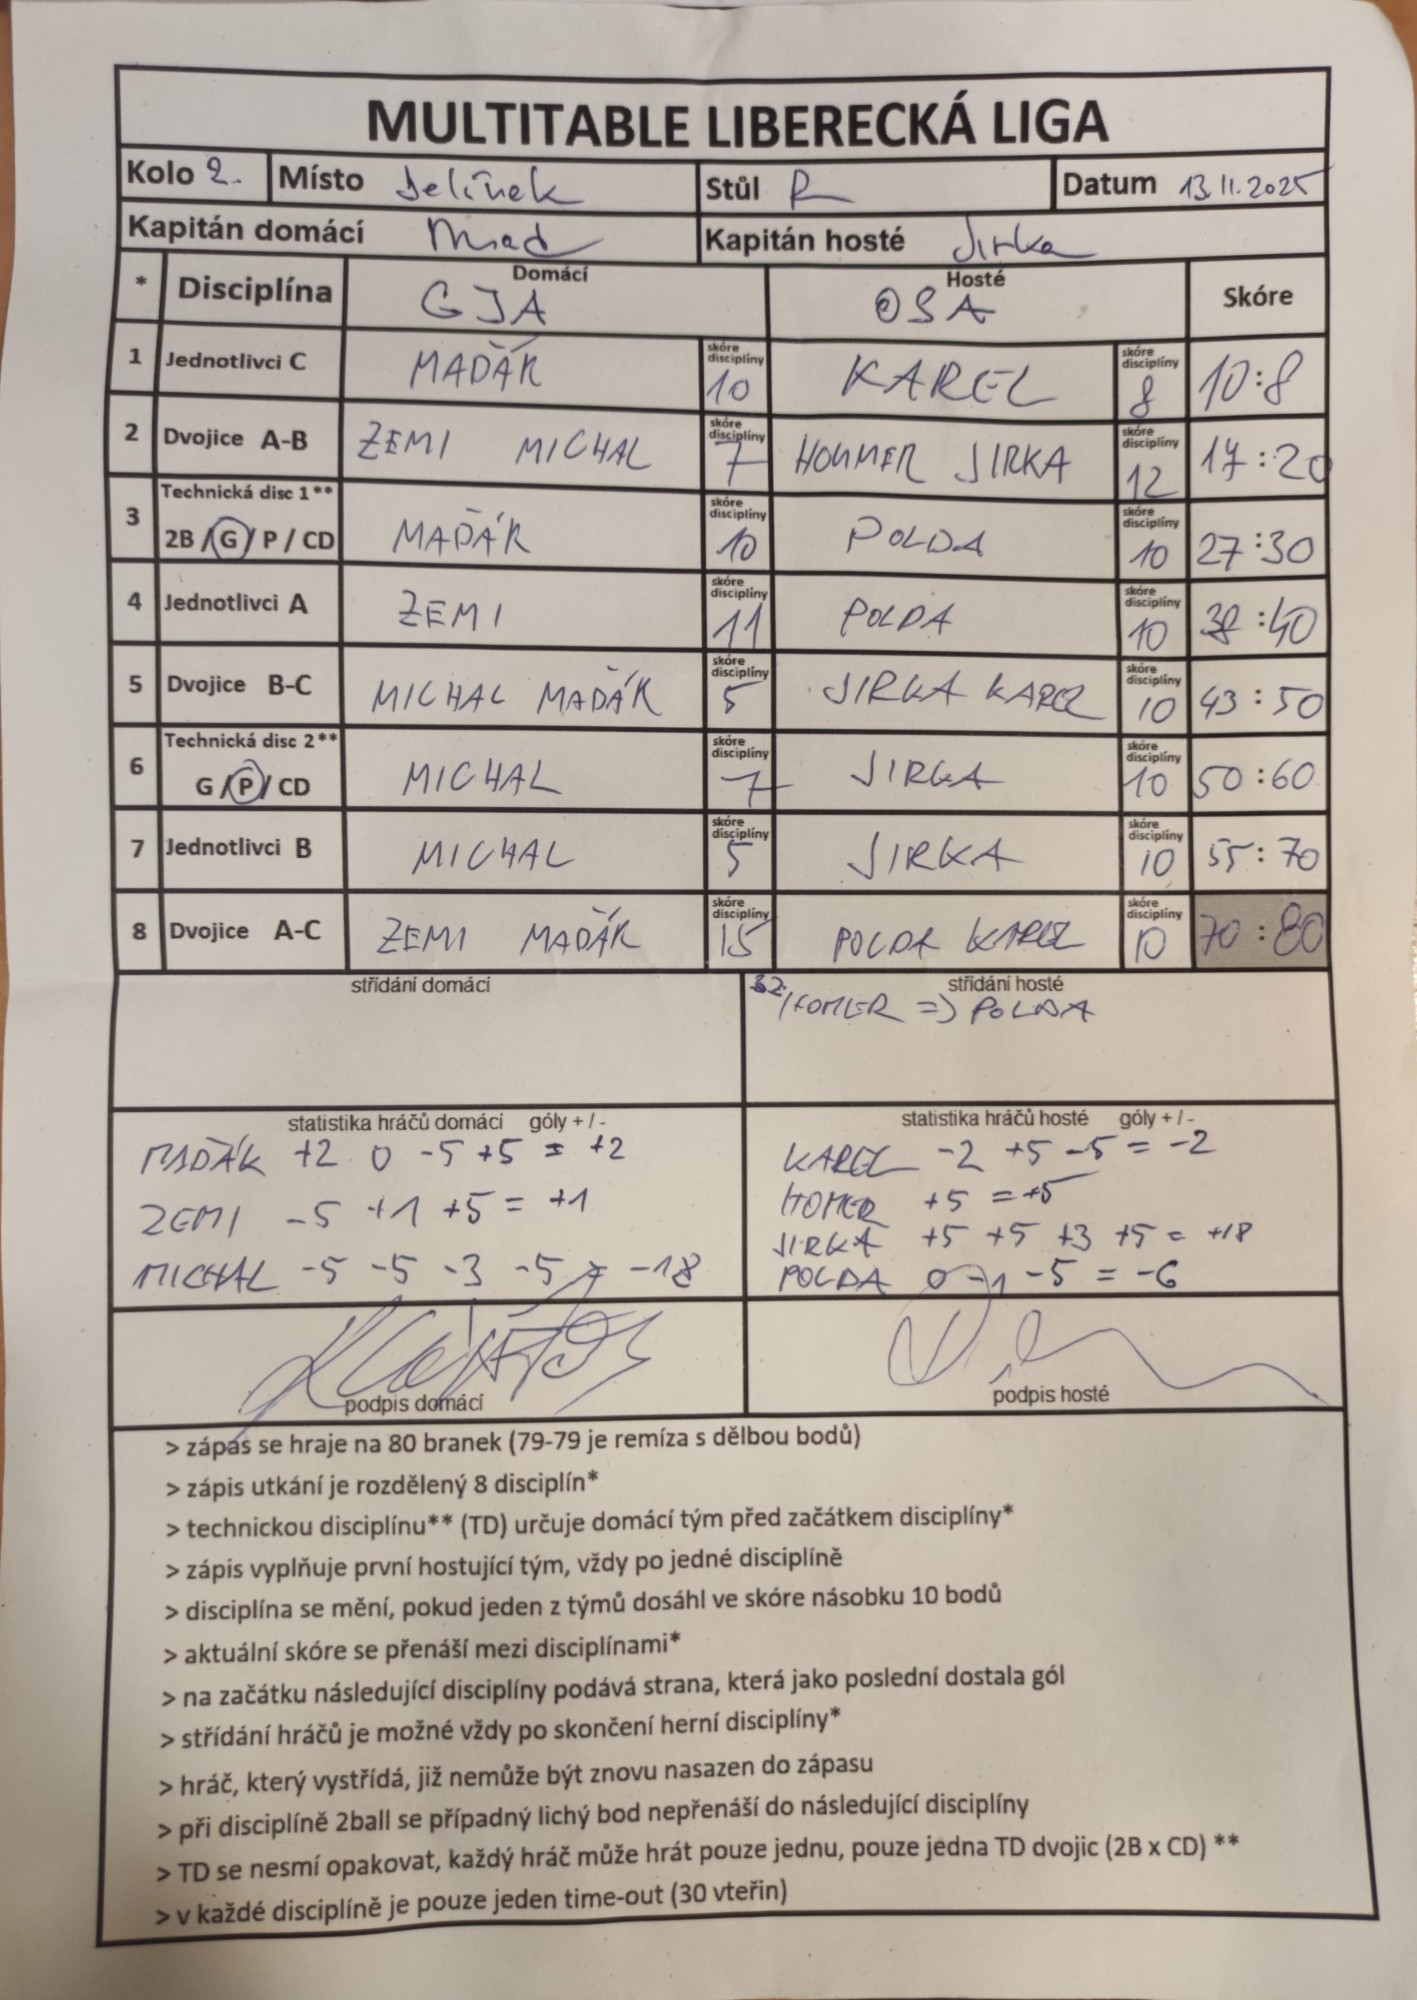 MULTITABLE LIBERECKÁ LIGA
Kolo 2. Místo Jelínek Stůl R Datum 13.11.2025
Kapitán domácí Mrad Kapitán hosté Jirka
* Disciplína Domácí GJA Hosté OSA Skóre
1 Jednotlivci C MAĎÁK skóre disciplíny 10 KAREL skóre disciplíny 8 10:8
2 Dvojice A-B ZEMI MICHAL skóre disciplíny 7 HOMMER JIRKA skóre disciplíny 12 17:20
3 Technická disc 1** 2B / G / P / CD MAĎÁK skóre disciplíny 10 POLDA skóre disciplíny 10 27:30
4 Jednotlivci A ZEMI skóre disciplíny 11 POLDA skóre disciplíny 10 38:40
5 Dvojice B-C MICHAL MAĎÁK skóre disciplíny 5 JIRKA KAREL skóre disciplíny 10 43:50
6 Technická disc 2** G / P / CD MICHAL skóre disciplíny 7 JIRKA skóre disciplíny 10 50:60
7 Jednotlivci B MICHAL skóre disciplíny 5 JIRKA skóre disciplíny 10 55:70
8 Dvojice A-C ZEMI MAĎÁK skóre disciplíny 15 POLDA KAREL skóre disciplíny 10 70:80
střídání domácí střídání hosté
HOMER => POLDA
statistika hráčů domácí góly + / - statistika hráčů hosté góly + / -
MAĎÁK +2 0 -5 +5 = +2
ZEMI -5 +1 +5 = +1
MICHAL -5 -5 -3 -5 = -18
KAREL -2 +5 -5 = -2
HOMER +5 = +5
JIRKA +5 +5 +3 +5 = +18
POLDA 0 -1 -5 = -6
podpis domácí podpis hosté
> zápas se hraje na 80 branek (79-79 je remíza s dělbou bodů)
> zápis utkání je rozdělený 8 disciplín*
> technickou disciplínu** (TD) určuje domácí tým před začátkem disciplíny*
> zápis vyplňuje první hostující tým, vždy po jedné disciplíně
> disciplína se mění, pokud jeden z týmů dosáhl ve skóre násobku 10 bodů
> aktuální skóre se přenáší mezi disciplínami*
> na začátku následující disciplíny podává strana, která jako poslední dostala gól
> střídání hráčů je možné vždy po skončení herní disciplíny*
> hráč, který vystřídá, již nemůže být znovu nasazen do zápasu
> při disciplíně 2ball se případný lichý bod nepřenáší do následující disciplíny
> TD se nesmí opakovat, každý hráč může hrát pouze jednu, pouze jedna TD dvojic (2B x CD) **
> v každé disciplíně je pouze jeden time-out (30 vteřin)